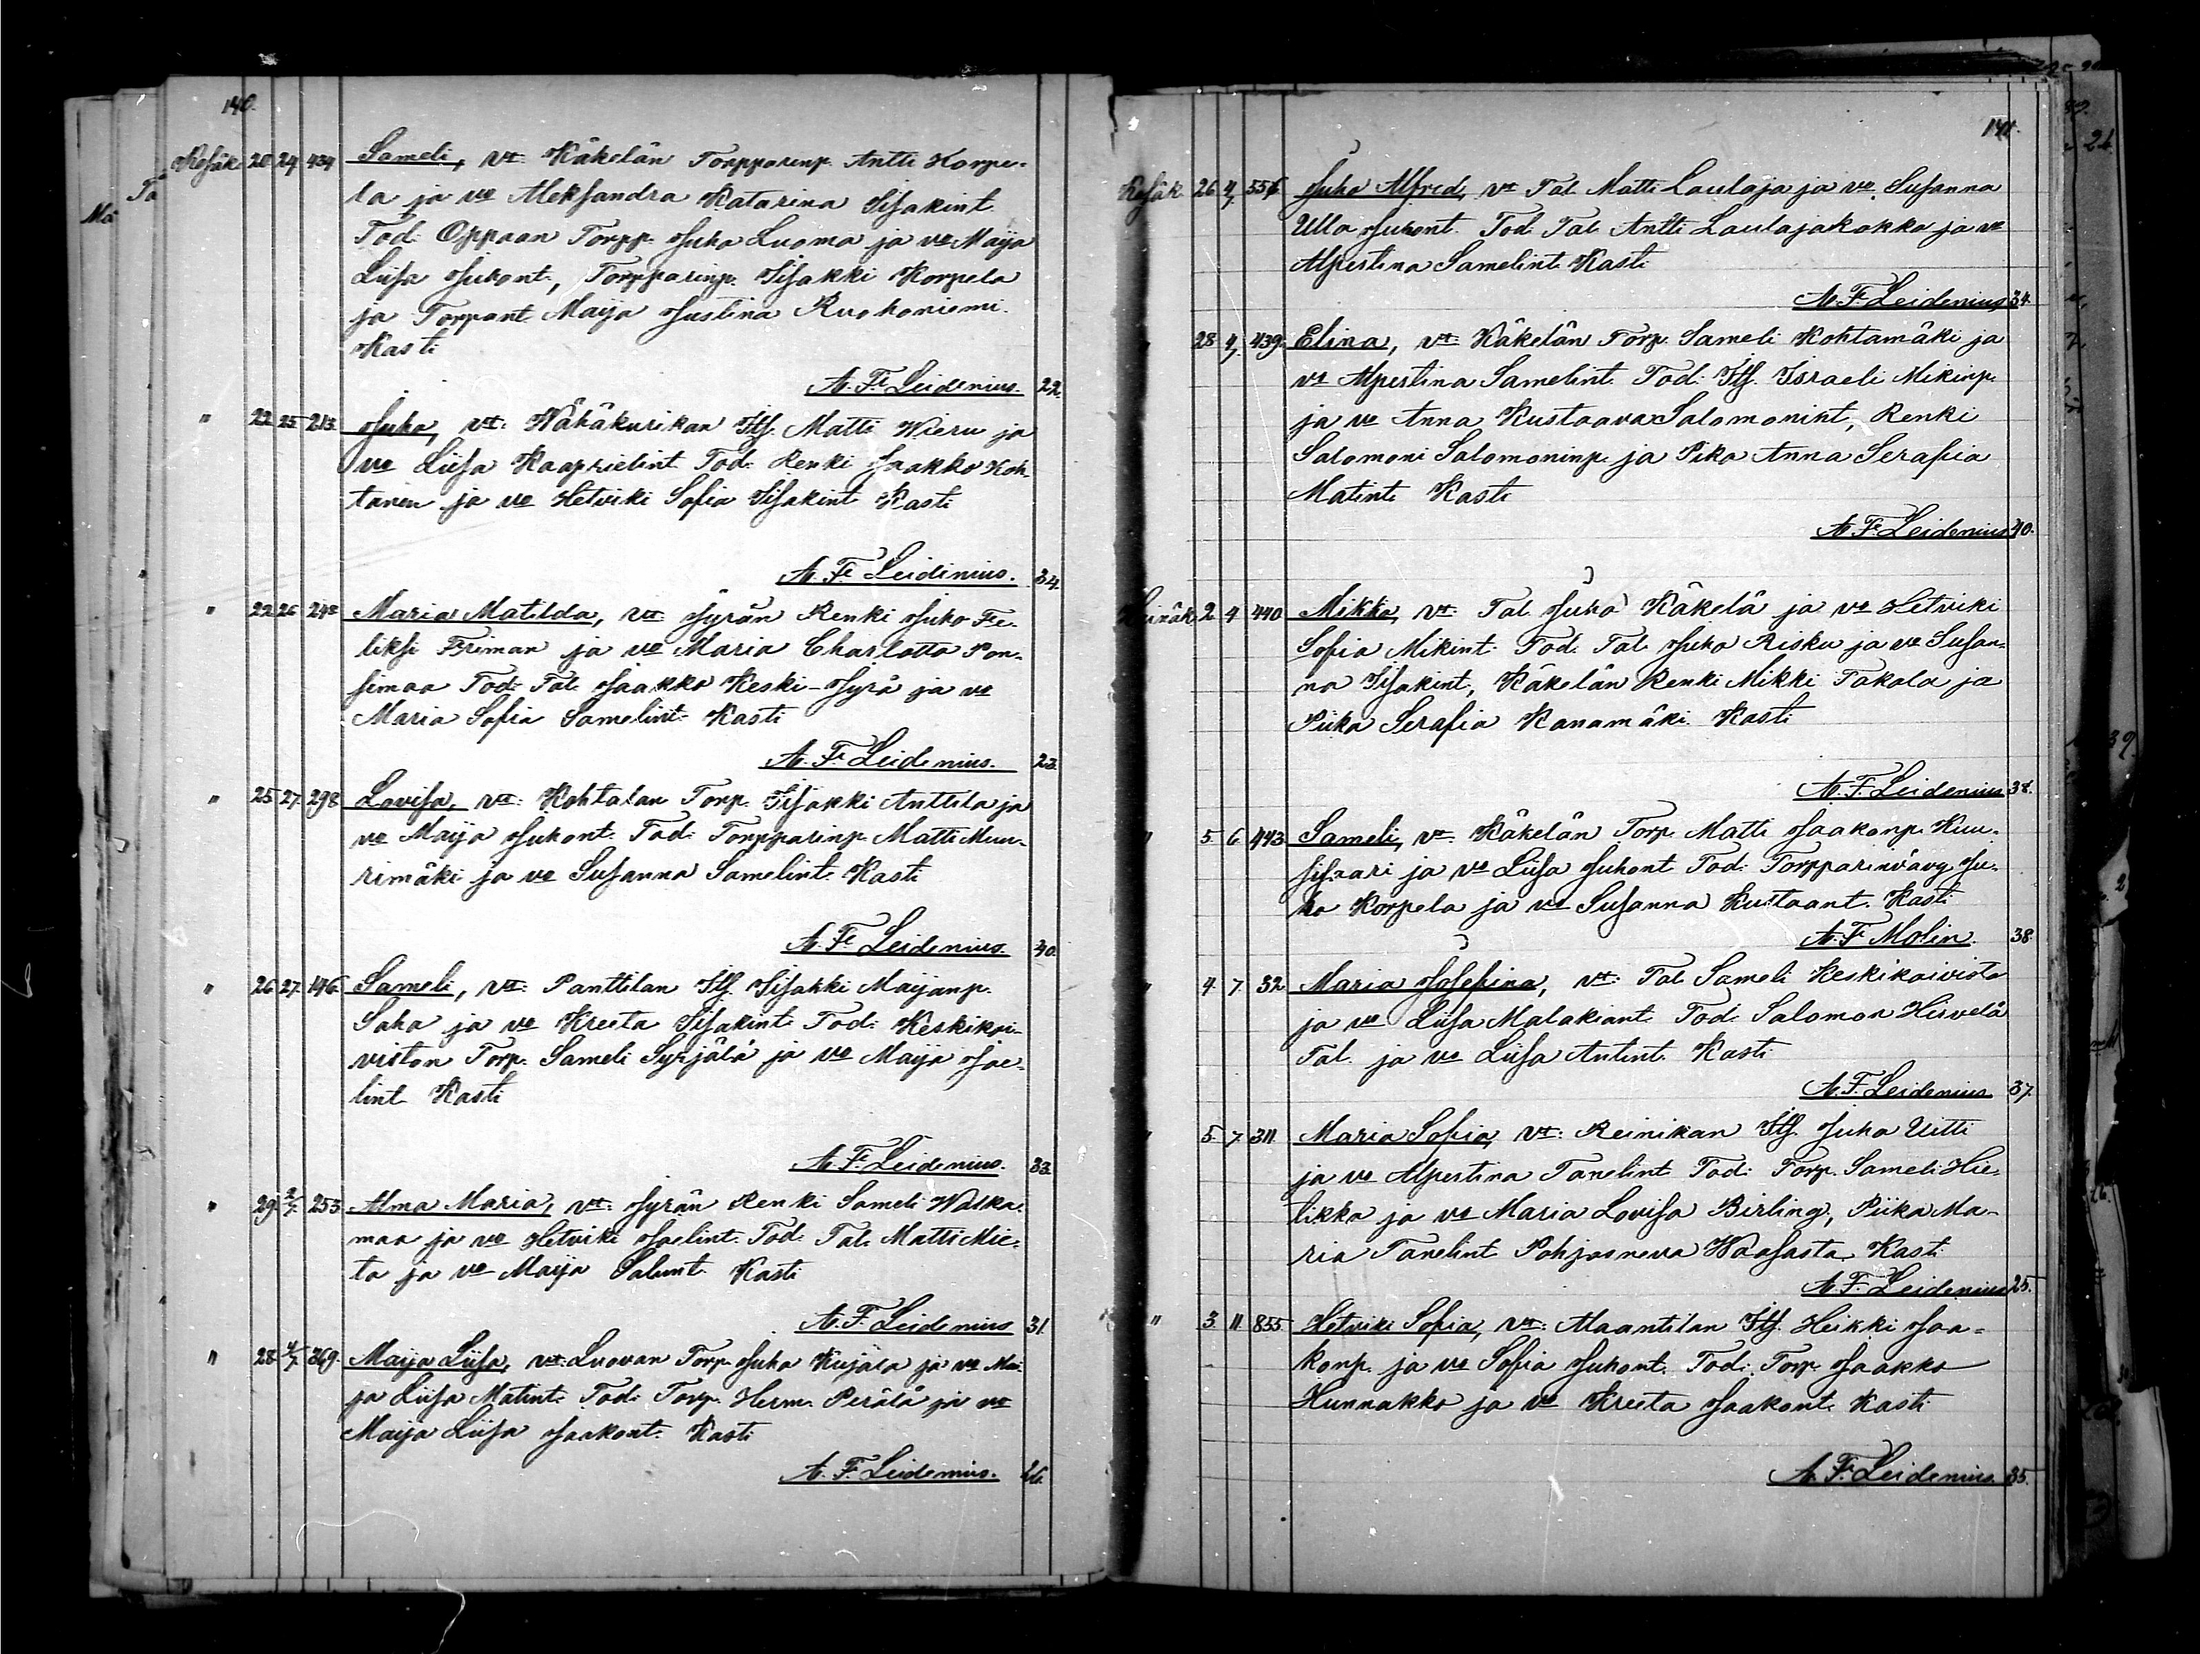 140.
Kesäk. 20 24 434 Sameli, vt: Käkelän Torpparinp. Antti Korpe-
la ja vo Aleksandra Katarina Iisakint.
Tod: Oppaan Torpp. Juho Luoma ja vo Maija
Liisa Juhont., Torpparinp. Iisakki Korpela
ja Torpant. Maija Justina Ruohoniemi.
Kasti
A. F. Leidenius. 22.
" 22 25 213. Juho, vt: Wähäkurikan Itll. Matti Wieru ja
vo Liisa Kaaprielint. Tod: Renki Jaakko Koh-
tanen ja vo Hetviki Sofia Iisakint Kasti
A. F. Leidenius. 34.
" 22 26 Maria Matilda, vt: Jyrän Renki Juho Fe-
liksi Friman ja vo Maria Charlotta Pon-
simaa Tod: Tal. Jaakko Keski-Jyrä ja vo
Maria Sofia Samelint. Kasti
A. F. Leidenius. 23.
" 25 27. 298 Lovisa, vt: Kohtalan Torp. Iisakki Anttila ja
vo Maija Juhont. Tod: Torpparinp. Matti Muu-
rimäki ja vo Susanna Samelint. Kasti
A. F. Leidenius. 40.
" 26 27. 146. Sameli, vt: Panttilan Itll. Iisakki Maijanp.
Saha ja vo Kreeta Iisakint. Tod: Keskikoi-
viston Torp. Sameli Syrjälä ja vo Maija Joe-
lint. Kasti
A. F. Leidenius. 33.
" 29. 2/7. 253 Alma Maria, vt: Jyrän Renki Sameli Walka-
maa ja vo Hetviki Joelint. Tod: Tal. Matti Mie-
to ja vo Maija Salunt. Kasti
A. F. Leidenius 31.
" 28 4/7. 369. Maija Liisa, vt: Luovan Torp. Juha Kujala ja vo Mai-
ja Liisa Matint. Tod: Torp. Herm. Perälä ja vo
Maija Liisa Jaakont. Kasti
A. F. Leidenius. 26.
141.
Kesäk. 26. 4, 556. Juho Alfred, vt Tal. Matti Laulaja ja vo. Susanna
Ulla Juhont. Tod. Tal. Antti Laulajakokko ja vo
Alpertina Samelint. Kasti
A. F. Leidenius 34.
28 4, 439. Elina, vt: Käkelän Torp. Sameli Kohtamäki ja
vo Alpertina Samelint. Tod: Itll. Israeli Mikinp.
ja vo Anna Kustaava Salomonint, Renki
Salomoni Salomoninp. ja Pika Anna Serafia
Matint. Kasti
A. F. Leidenius 40.
Heinäk. 2. 4 440 Mikko, vt: Tal. Juho Käkelä ja vo Hetviki
Sofia Mikint. Tod: Tal. Juho Risku ja vo Susan-
na Iisakint, Käkelän Renki Mikki Takala ja
Piika Serafia Kanamäki. Kasti
A. F. Leidenius 38.
" 5. 6. 443. Sameli, vt. Käkelän Torp. Matti Jaakonp. Kuu-
sisaari ja vo Liisa Juhont. Tod: Torpparinväv. Ju-
ho Korpela ja vo Susanna Kustaant. Kasti
A. F. Molin. 38.
" 4. 7. 32. Maria Josefina, vt: Tal. Sameli Keskikoivisto
ja vo Liisa Malakiant. Tod. Salomon Hirvelä
Tal. ja vo Liisa Antint. Kasti
A. F. Leidenius 37.
" 5. 7. 311. Maria Sofia, vt: Reinikan Itll. Juha Uitti
ja vo Alpertina Tanelint. Tod: Torp. Sameli Hie-
likko ja vo Maria Lovisa Birling, Piika Ma-
ria Tanelint Pohjasneva Waasasta. Kasti
A. F. Leidenius 25.
" 3. 11. 855. Hetviki Sofia, vt: Alaanttilan Itll. Heikki Jaa-
konp. ja vo Sofia Juhont. Tod: Torp. Jaakko
Hunnakko ja vo Kreeta Jaakont. Kasti
A. F. Leidenius. 35.